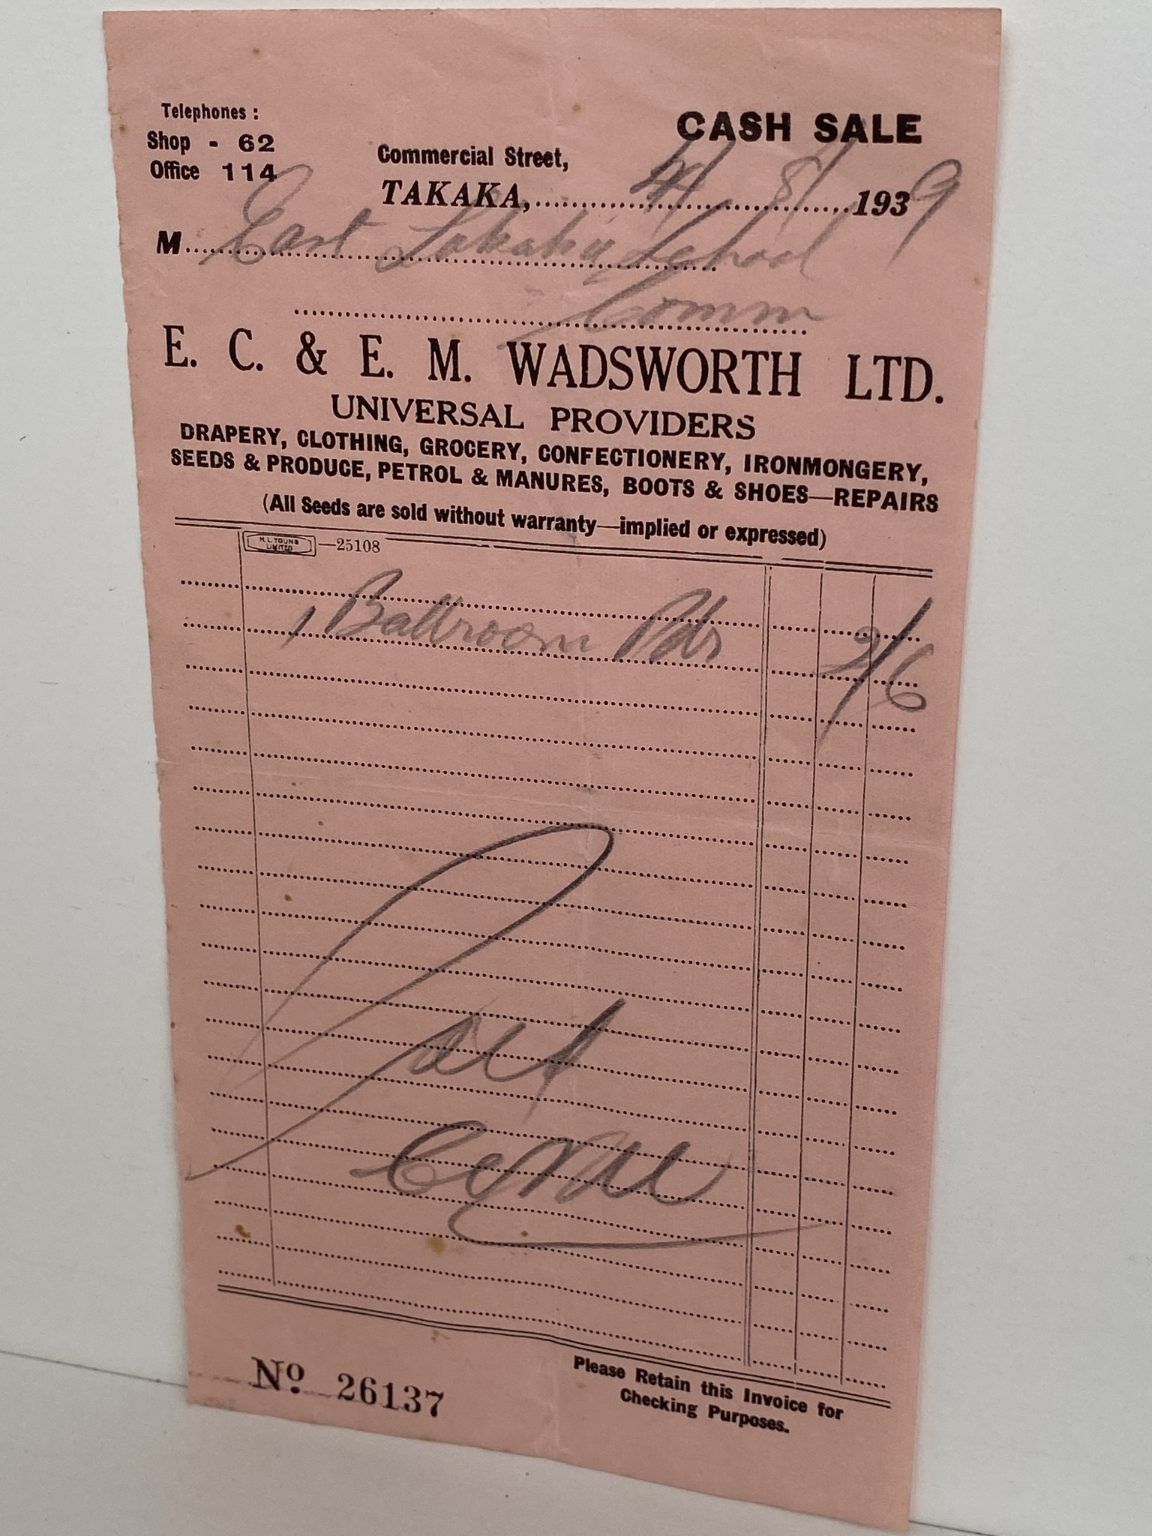 Telephones :
Shop - 62
Office 114
CASH SALE
Commercial Street,
TAKAKA, 4/8/1939
M East Takaka School
Comm
E. C. & E. M. WADSWORTH LTD.
UNIVERSAL PROVIDERS
DRAPERY, CLOTHING, GROCERY, CONFECTIONERY, IRONMONGERY,
SEEDS & PRODUCE, PETROL & MANURES, BOOTS & SHOES—REPAIRS
(All Seeds are sold without warranty—implied or expressed)
H. L. YOUNG
LIMITED
—25108
1 Ballroom Pdr 2/6
Nº 26137
Please Retain this Invoice for
Checking Purposes.